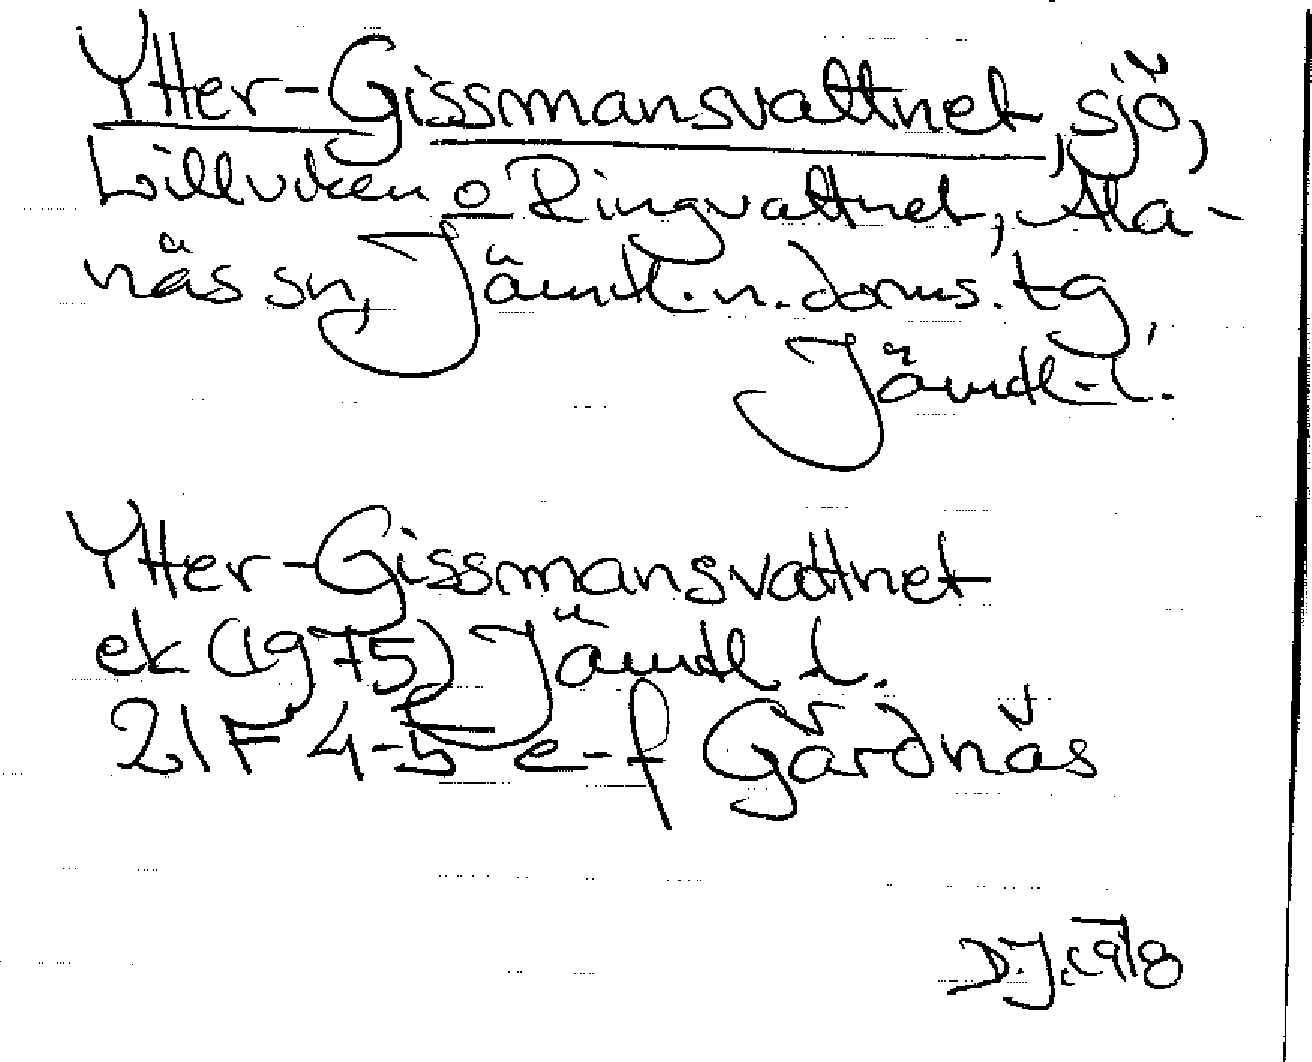 Ytter-Gissmansvattnet, sjö,
Lillviken o Ringvattnet, Ala-
näs sn, Jämtl. n. doms. tg,
Jämtl. l.
Ytter-Gissmansvattnet
ek (1975) Jämtl l.
21F 4-5 e-f Gärdnäs
D.J. 1978